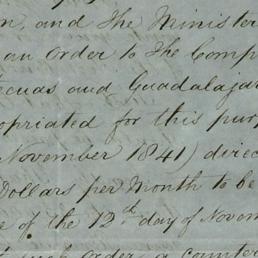 and the Minister
an order to the Comp
and Guadalajar
opropriated for this pur
November 1841) direc
Dollars per Month to be
of the 12th day of Novem
such order, a counter